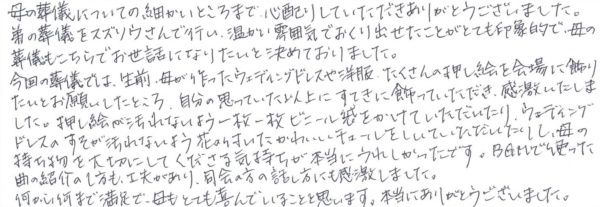 母の葬儀についての細かいところまで、心配りしていただきありがとうございました。
弟の葬儀をスズリウさんで行い、温かい雰囲気でおくり出せたことがとても印象的で、母の
葬儀もこちらでお世話になりたいと決めておりました。
今回の葬儀では、生前、母が作ったウェディングドレスや洋服、たくさんの押し絵を会場に飾り
たいとお願いしたところ、自分の思っていた以上にすてきに飾っていただき、感激いたしま
した。押し絵が汚れないよう一枚一枚ビニール袋をかけていただいたり、ウェディング
ドレスのすそが汚れないよう花のついたかわいいチュールをしいていただいたりし、母の
持ち物を大切にしてくださる気持ちが本当にうれしかったです。BGMで使った
曲の紹介のし方も、工夫があり、司会の方の話し方にも感激しました。
何から何まで満足で、母もとても喜んでいることと思います。本当にありがとうございました。